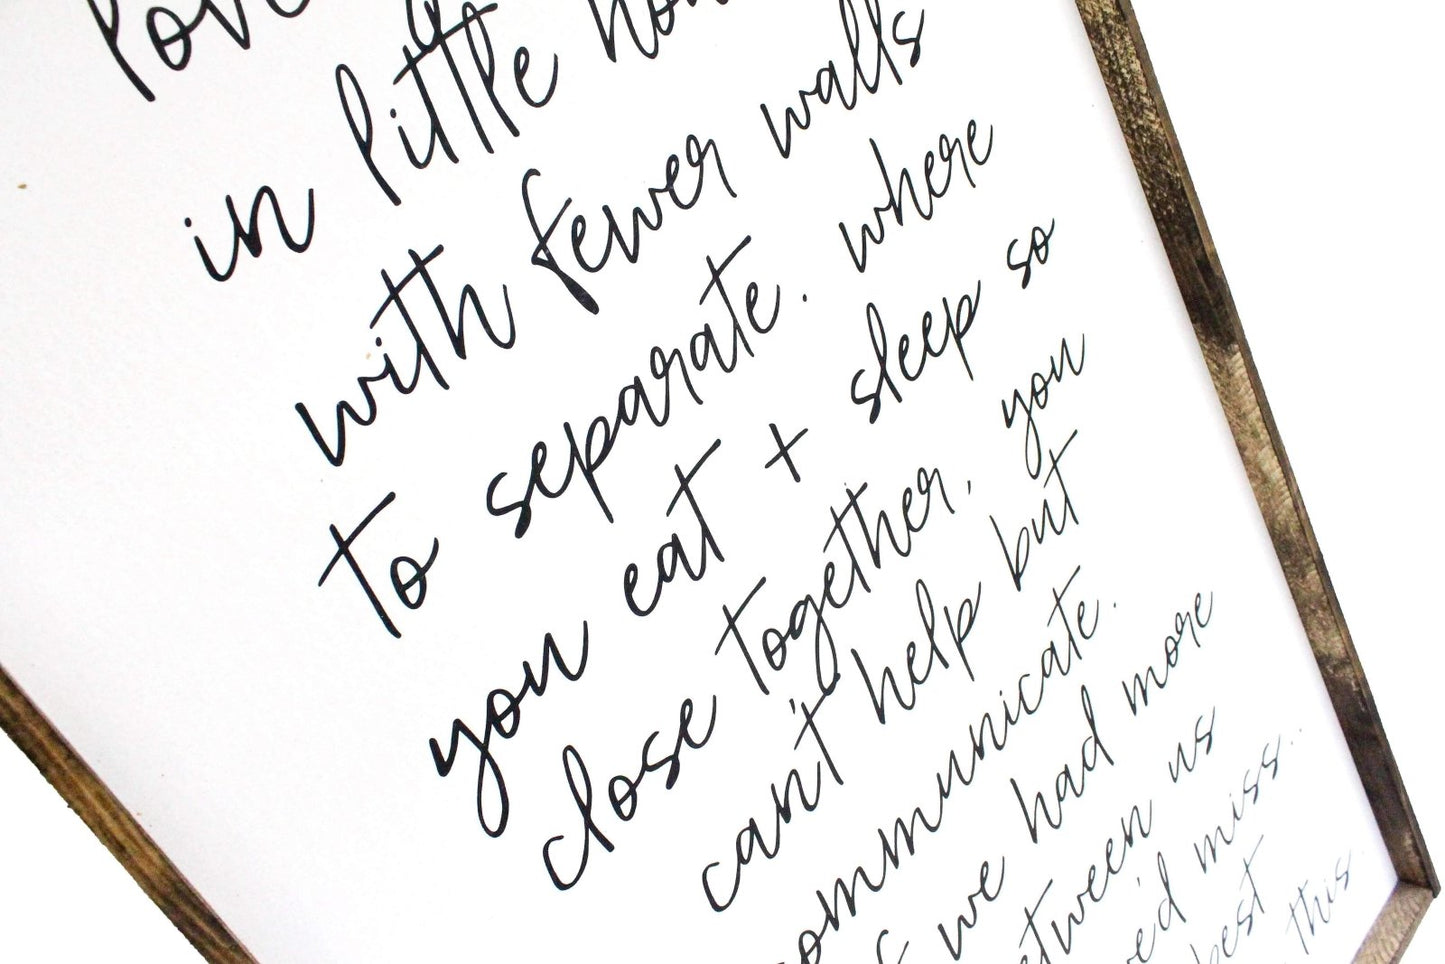 in little
with fewer walls
to separate. where
you eat + sleep so
close together, you
can't help but
communicate.
we had more
us
miss...
best
this.